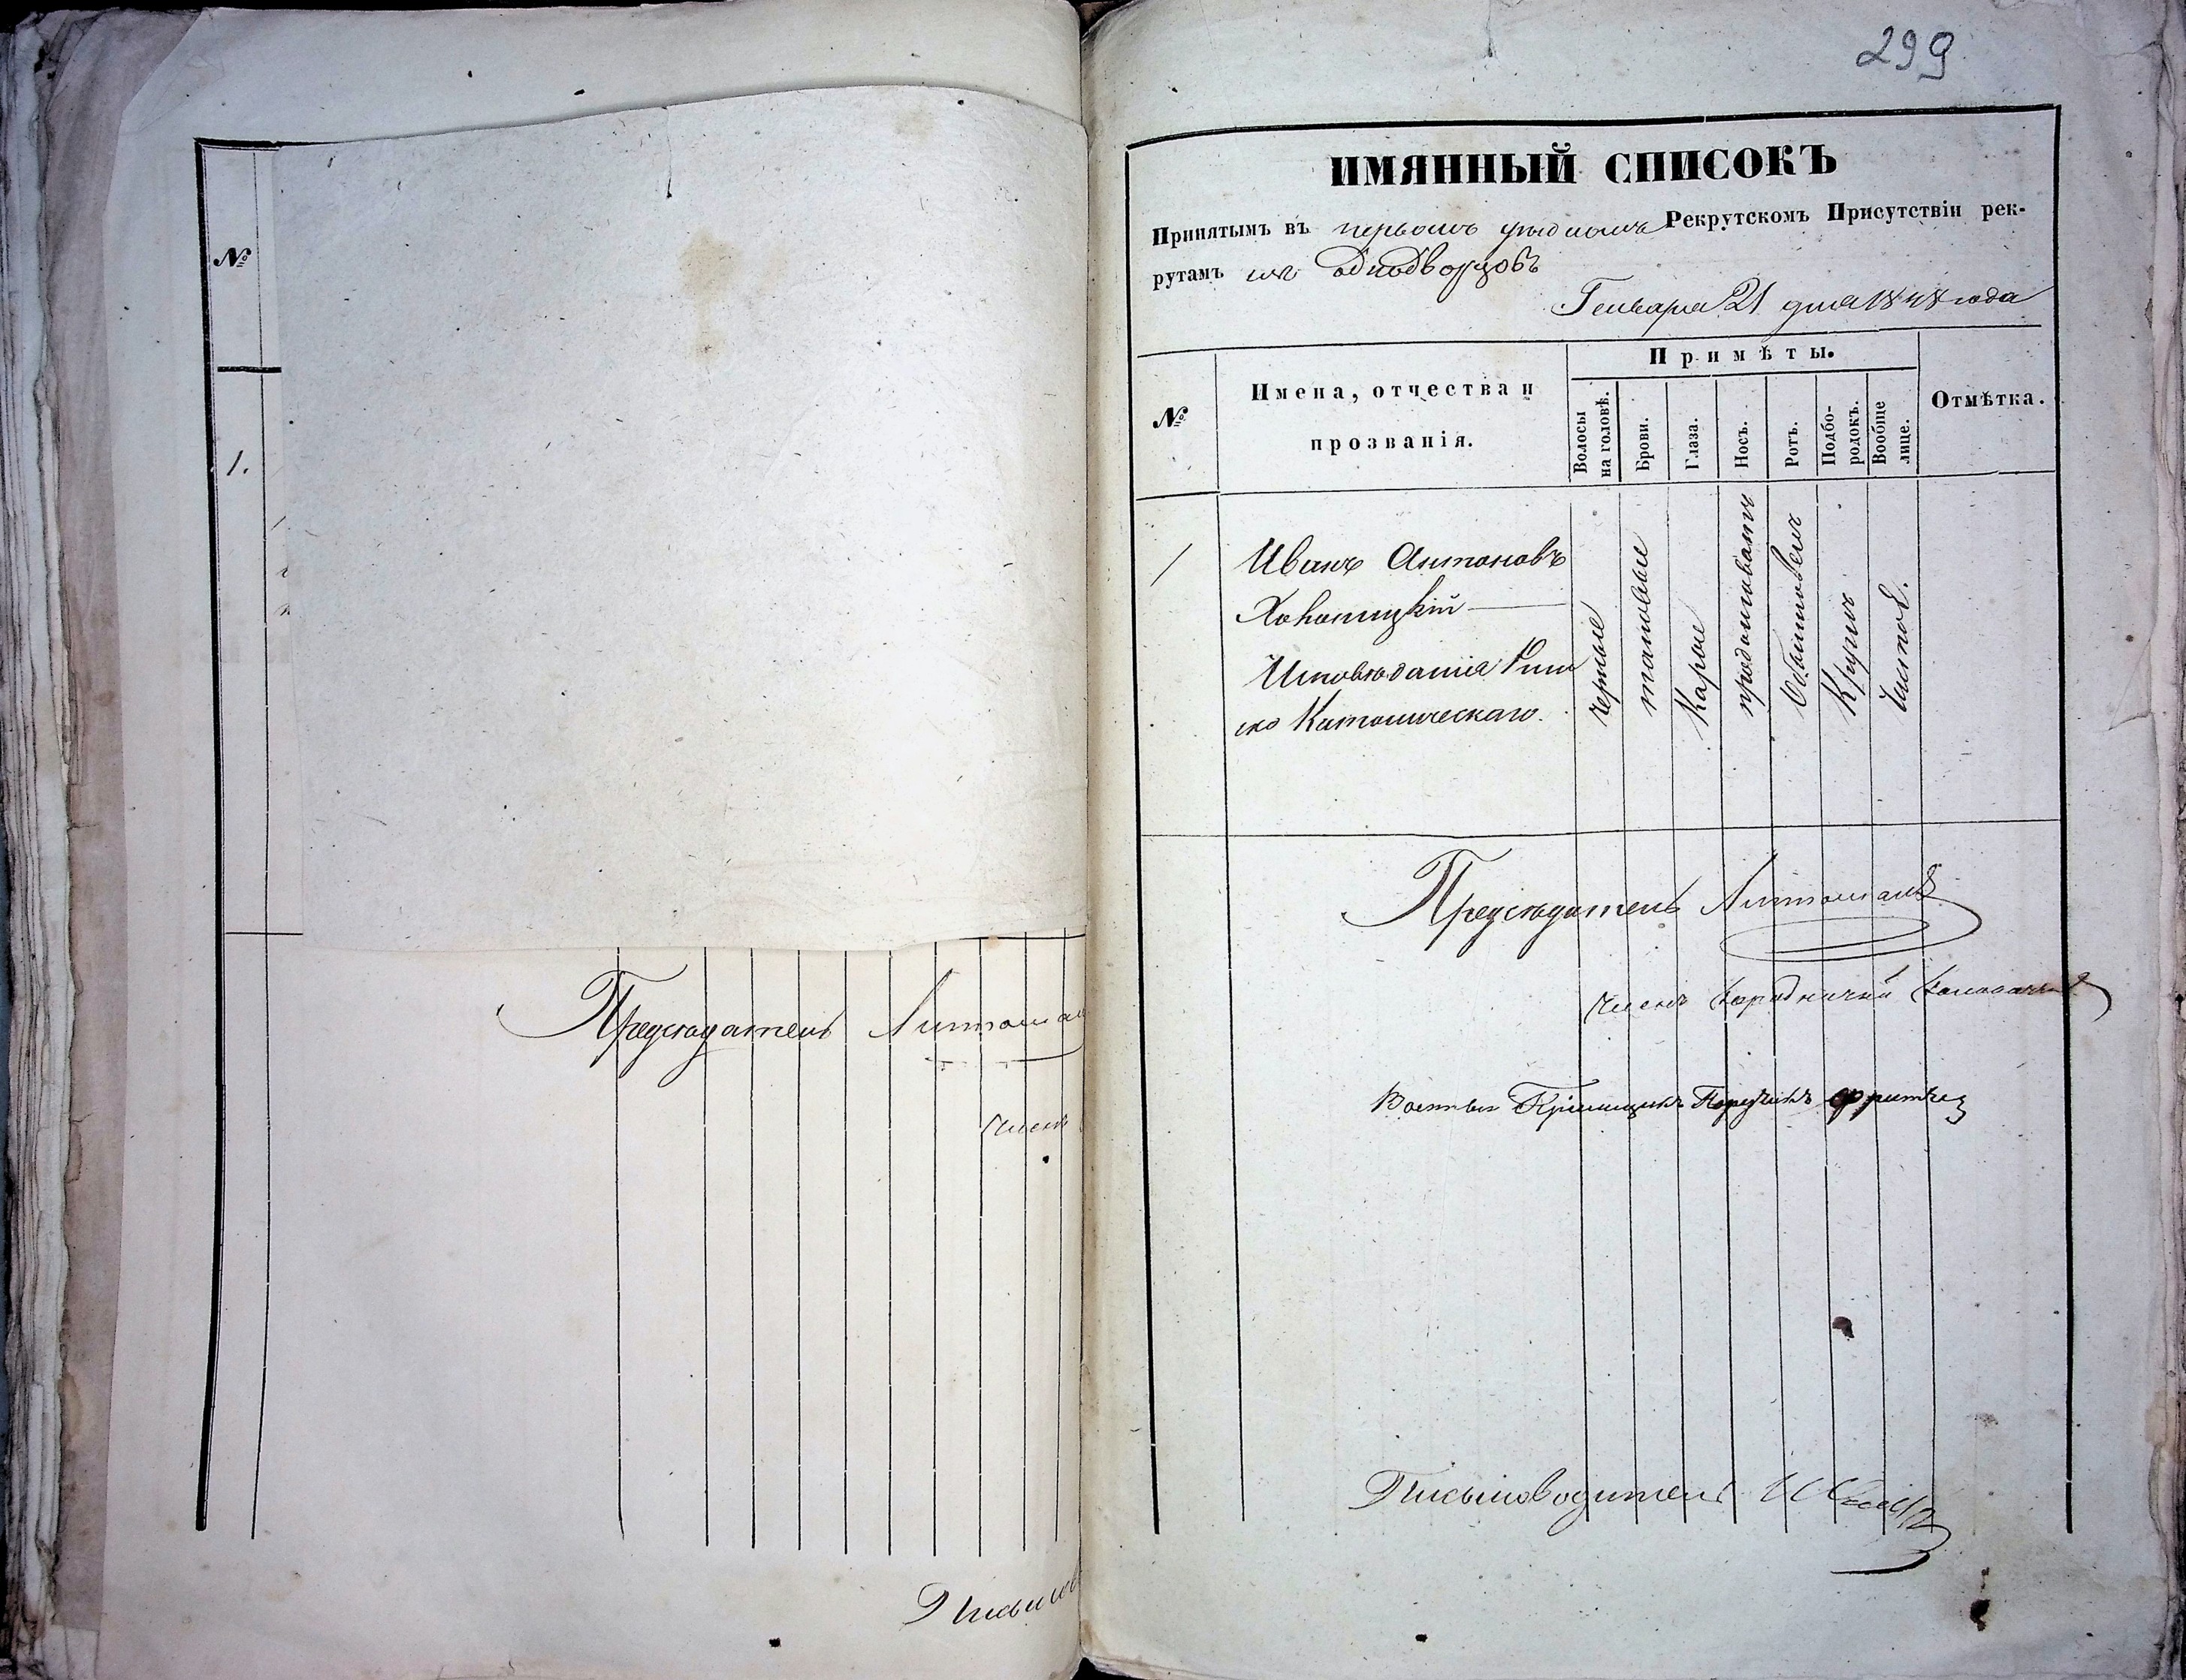 №
1.
Предсѣдатель
Членъ
299
ИМЯННЫЙ СПИСОКЪ
Принятымъ въ первомъ уѣздномъ Рекрутскомъ Присутствіи рек-
рутамъ изъ однодворцовъ
Генваря 21 дня 1848 года
№
Имена, отчества и
прозванія.
Примѣты.
Волосы
на головѣ.
Брови.
Глаза.
Носъ.
Ротъ.
Подбо-
родокъ.
Вообще
лице.
Отмѣтка.
1
Иванъ Антоновъ
Исповѣданія Рим
ско Католическаго.
черные
таковые
Карые
продолговатъ
Обыкновенъ
Круглъ
Чистое.
Предсѣдатель
Членъ Городничій
Военный Пріемщикъ Поручикъ
Письмоводитель